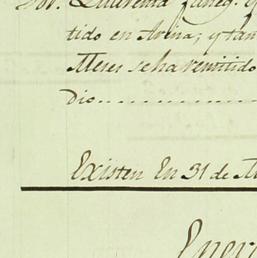 tido en Arina; y tan
Meses se ha remitido
dio
Existen En 31 de M
Ener